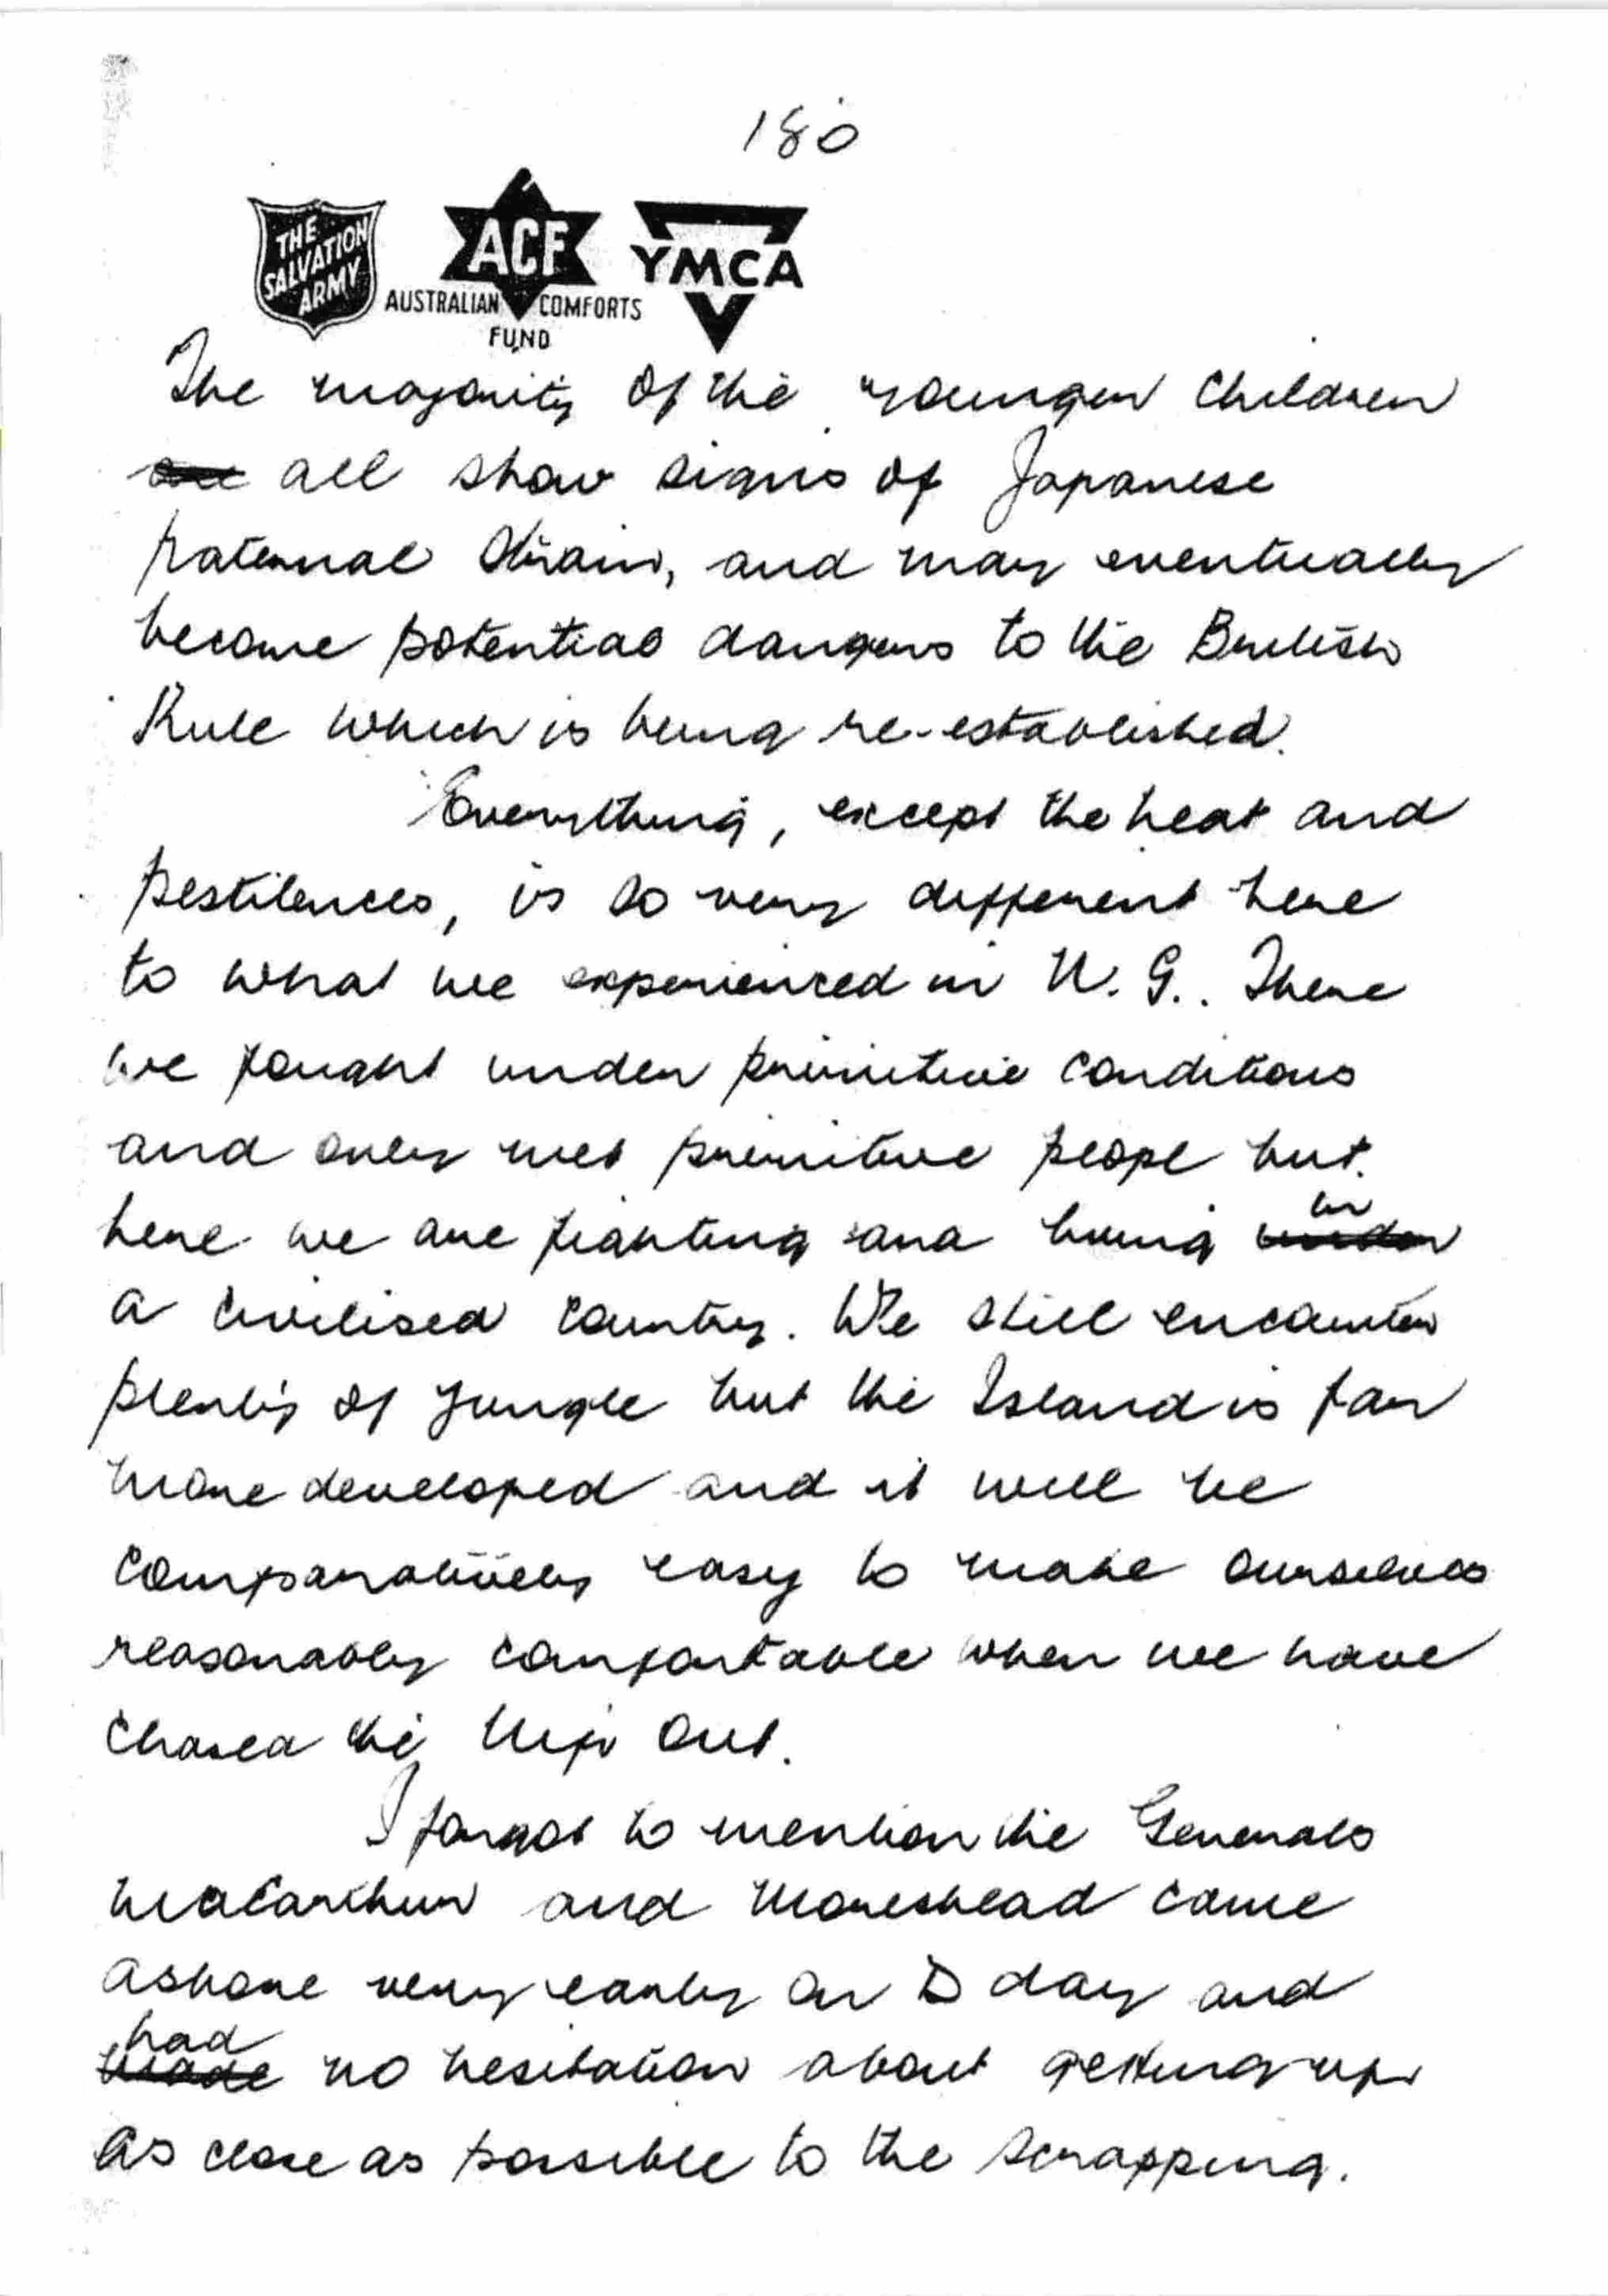 180
THE
SALVATION
ARMY
ACF
AUSTRALIAN COMFORTS
FUND
YMCA
The majority of the younger children
are all show signs of Japanese
paternal strain, and may eventually
become potential dangers to the British
Rule which is being re-established.
Everything, except the heat and
pestilences, is so very different here
to what we experienced in N. G.. There
we fought under primitive conditions
and only met primitive peopl but
here we are fighting and living under in
a civilised country. We still encounter
plenty of jungle but the Island is far
more developed and it will be
comparatively easy to make ourselves
reasonably comfortable when we have
chased the Nip out.
I forgot to mention the Generals
MacCarthur and Moreshead came
ashore very early on D day and
made had no hesitation about getting up
as close as possible to the scrapping.